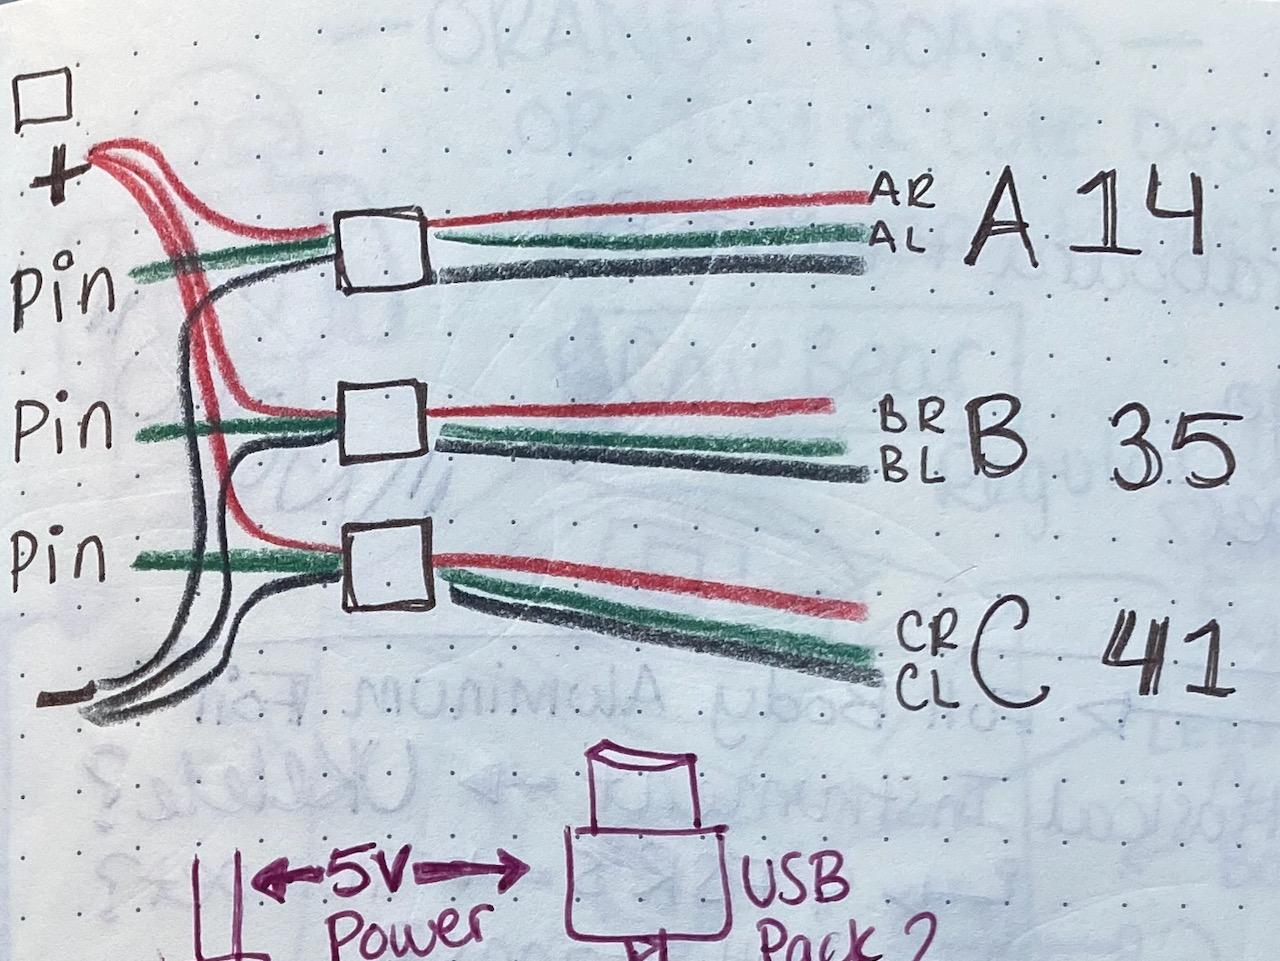 +
AR
AL
A 14
Pin
BR
BL
B 35
Pin
Pin
CR
CL
C 41
-
5V
Power
USB
Pack?
Aluminum Foil
Ukelele?